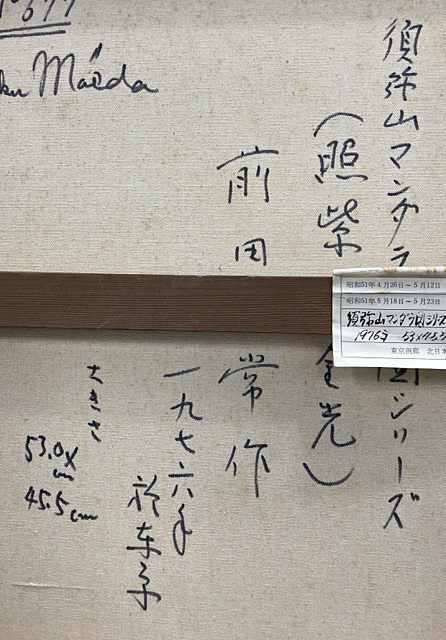 Maëda
須弥山マンダラ図シリーズ
(照紫金光)
前田常作
一九七六年
於東京
大きさ
53.0×
cm
45.5cm
昭和51年4月26日~5月12日
昭和51年5月18日~5月23日
須弥山マンダラ図シリーズ
1976年
東京画廊 北日本